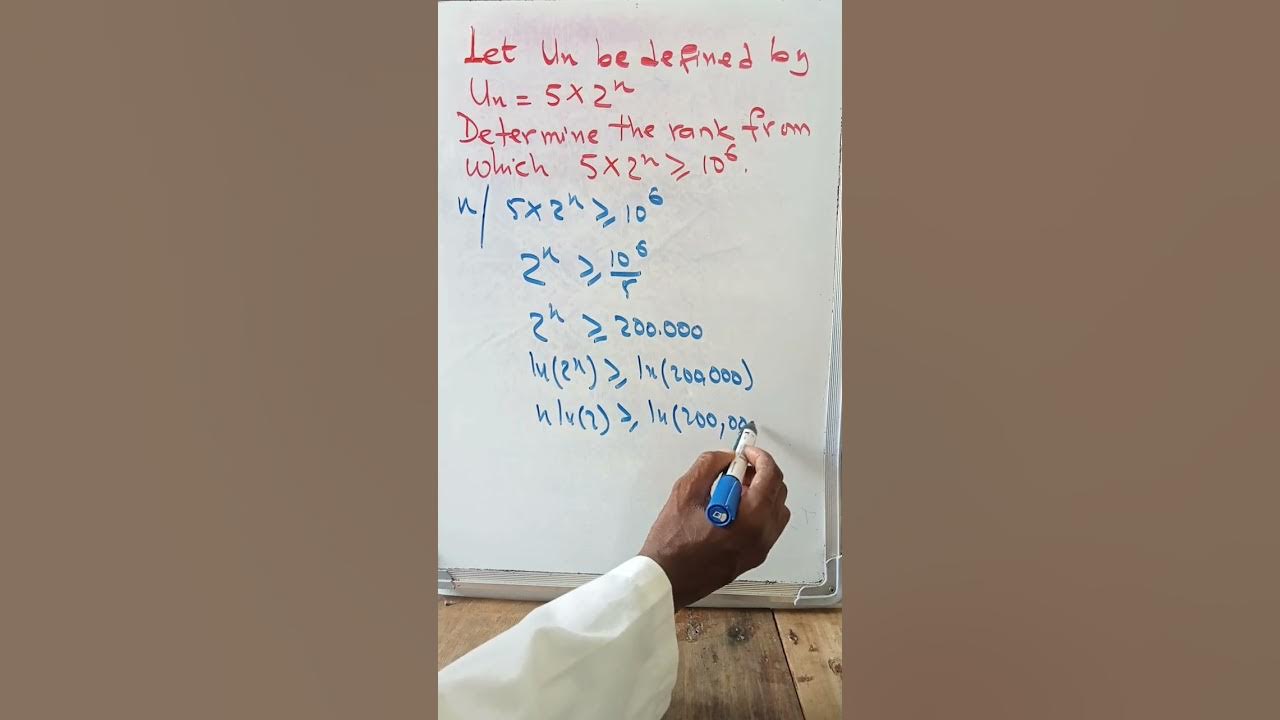 Let Un be defined by
Un = 5×2ⁿ
Determine the rank from
which 5×2ⁿ ⩾ 10⁶.
n/ 5×2ⁿ ⩾ 10⁶
2ⁿ ⩾ 10⁶/5
2ⁿ ⩾ 200.000
ln(2ⁿ) ⩾ ln(200,000)
n ln(2) ⩾ ln(200,00